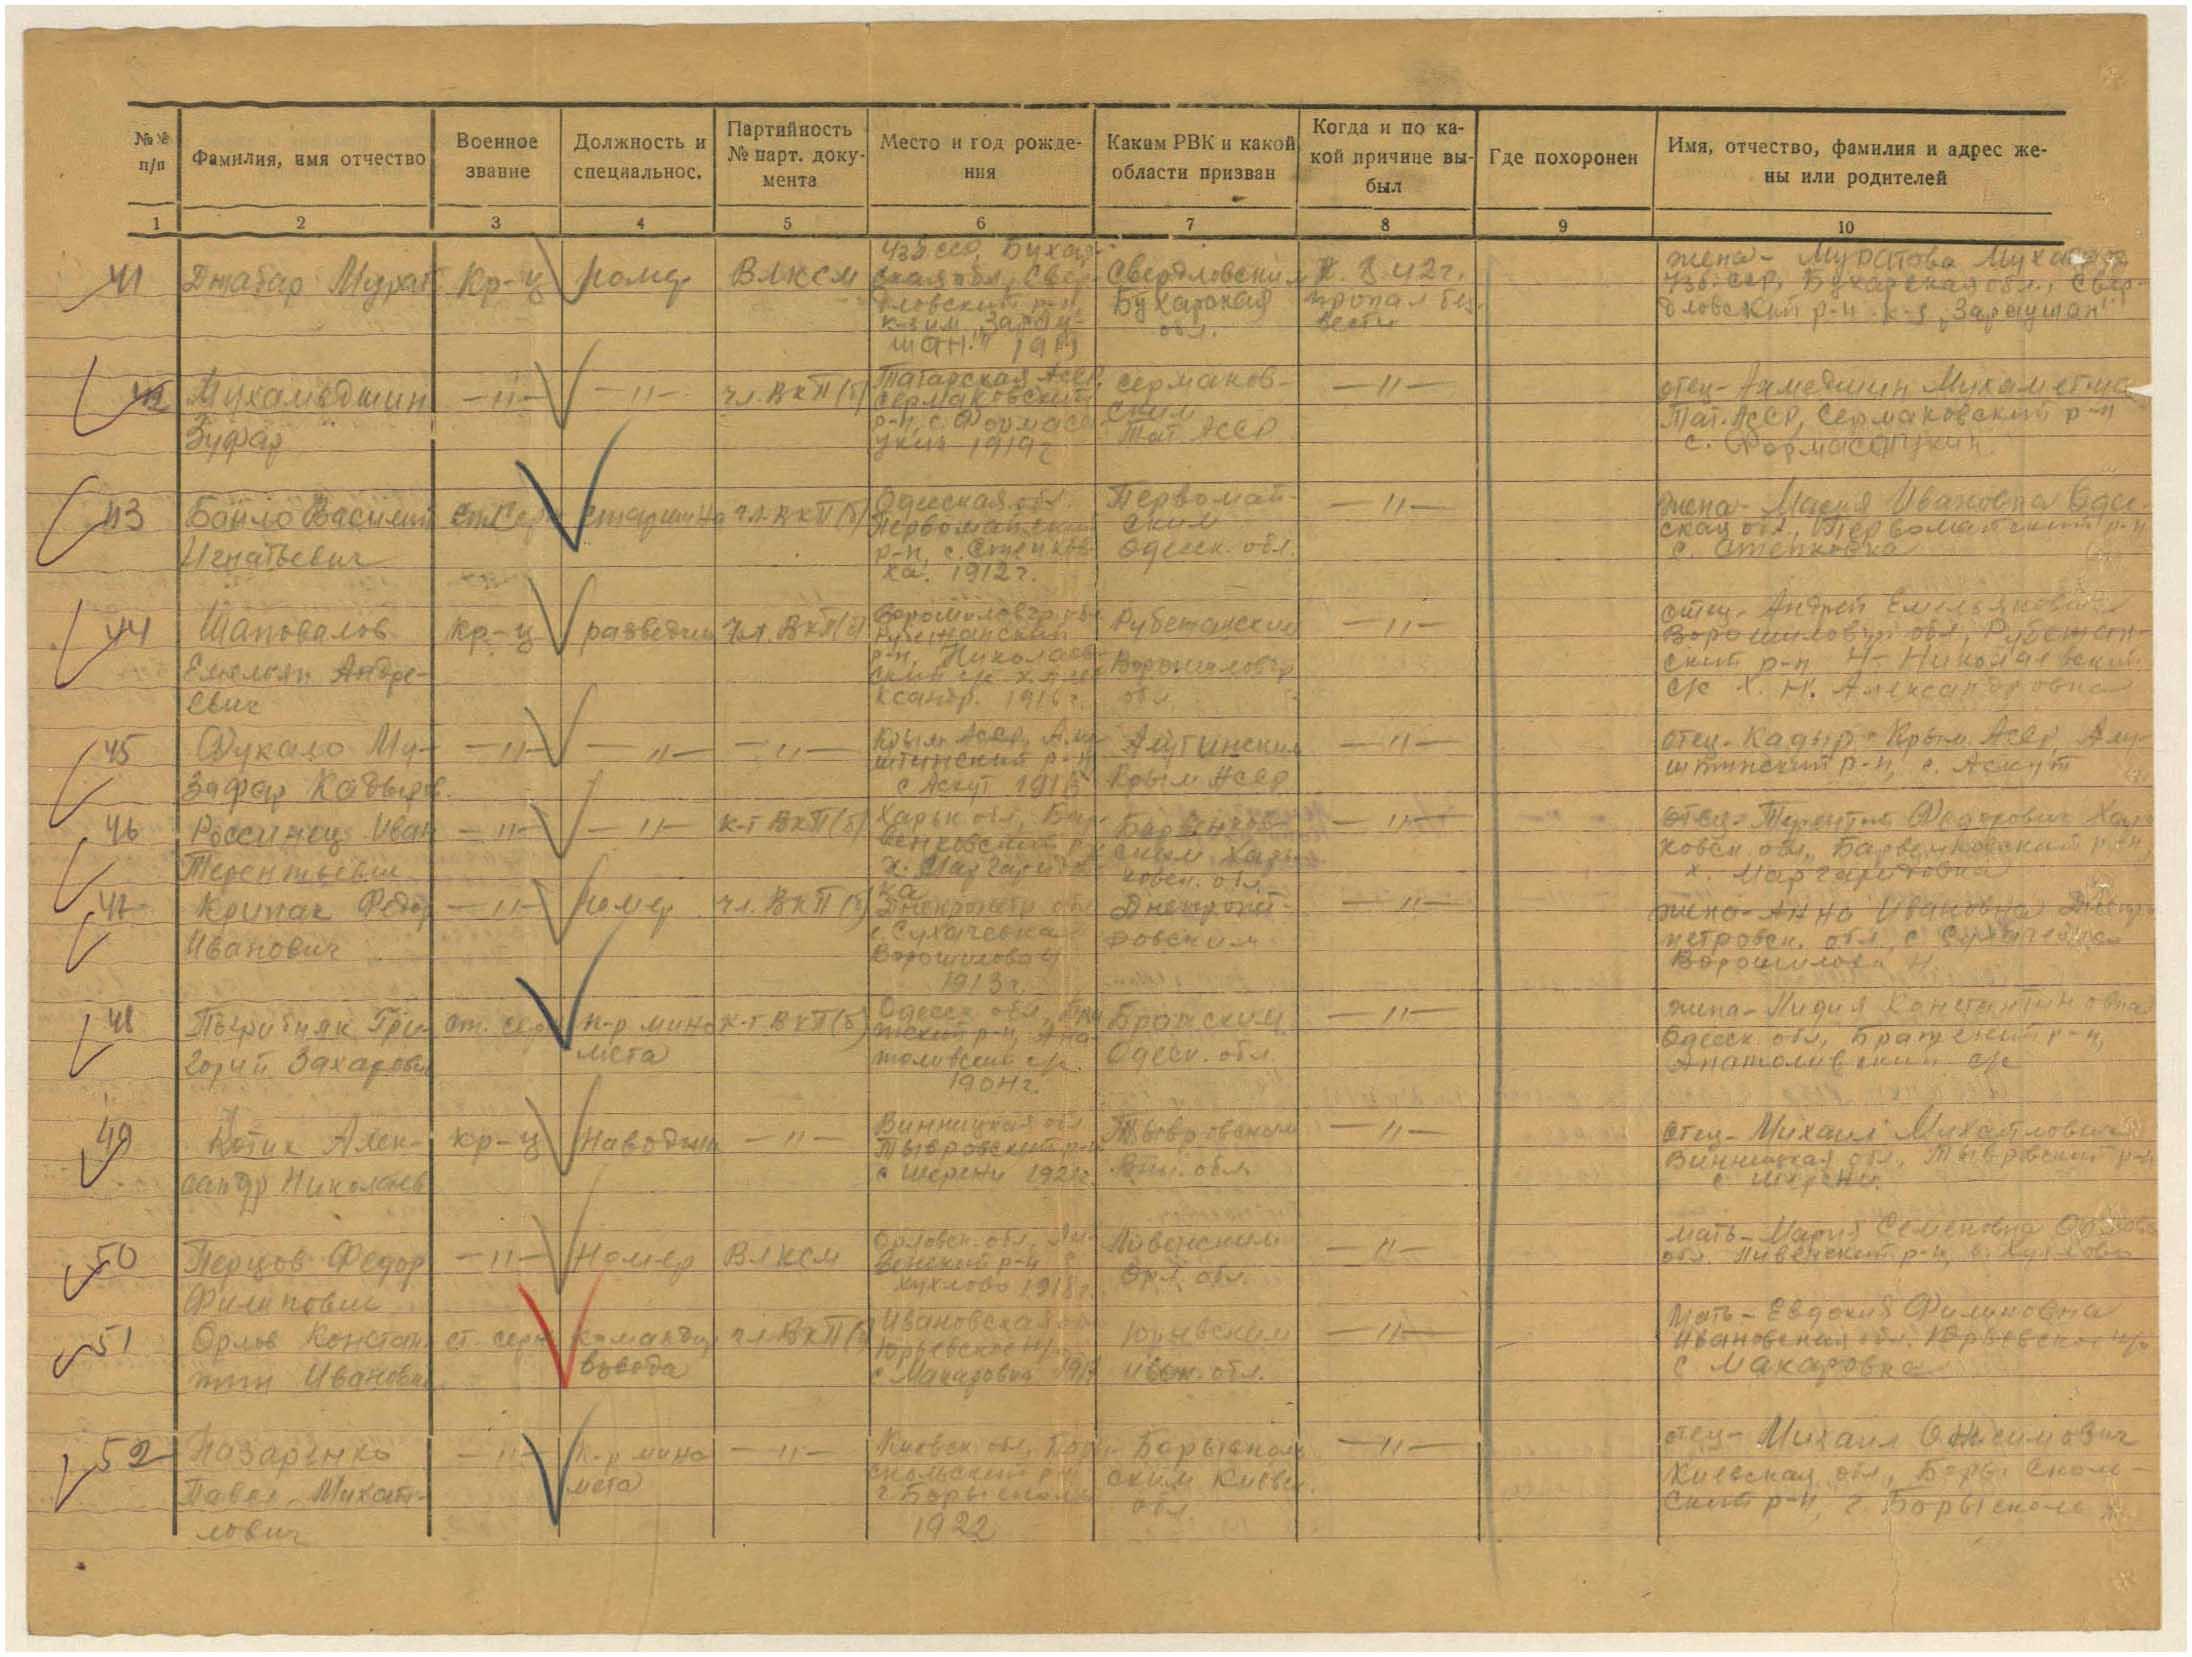 №№ п/п
Фамилия, имя отчество
Военное звание
Должность и специальнос.
Партийность № парт. документа
Место и год рождения
Каким РВК и какой области призван
Когда и по какой причине выбыл
Где похоронен
Имя, отчество, фамилия и адрес жены или родителей
1 2 3 4 5 6 7 8 9 10
41 Джабар Мурат Кр-ц номер ВЛКСМ
Узб ССР, Бухар-
ская обл, Свер-
дловский р-н,
шан." 1919
Свердловским
Бухарская
обл.
8 42 г.
пропал без
вести
жена - Муратова
Узб. ССР, Бухарская обл., Свер-
дловский р-н к-з „Зараушан"
42 Мухамедшин
Зуфар
—"— —"— чл. ВКП(б)
Татарская АССР,
Сермановский
р-н, с.
1919 г
Серманов-
ским
Тат. АССР
—"—
отец - Ахмедшин
Тат. АССР, Сермановский р-н
с.
43 Бойло Василий
Игнатьевич
Ст. Серж старшина чл. ВКП(б)
Одесская обл
Первомайский
р-н, с. Степков-
ка. 1912 г.
Первомай-
ским
Одесск. обл.
—"—
жена - Мария Ивановна Одес-
ская обл, Первомайский р-н
с. Степковка
44 Шаповалов
Емельян Андре-
евич
Кр-ц разведчик чл. ВКП(б)
Ворошиловгр. обл
Рубежанский
р-н, Николаев-
ский с/с
1916 г.
Рубежанским
Ворошиловгр
обл
—"—
отец - Андрей Емельянович
Ворошиловгр обл, Рубежан-
ский р-н Н-Николаевский
с/с х. Н. Александровка
45 Му-
зафар Кадыров.
—"— —"— —"—
Крым АССР, Алу-
штинский р-н
с Аскут
Крым АССР
—"—
отец - Кадыр - Крым АССР, Алу-
штинский р-н, с. Аскут
46 Россинец Иван
Терентьевич
—"— —"— к-т ВКП(б)
Харьк обл, Бар-
венковский р-н
х. Маргаритов-
ка
Барвенков-
ским Харь-
ковск. обл.
—"—
отец - Терентий Федорович Харь-
ковск. обл, Барвенковский р-н,
х. Маргаритовка
47 Крипак Федор
Иванович
—"— номер чл. ВКП(б)
Днепропетр обл
с. Сухачевка
Ворошилова
1913 г.
Днепропет-
ровским
—"—
жена - Анна Ивановна Днепро-
петровск. обл, с Сухачевка
Ворошилова
48
Григорий Захарович
ст. сер к-р мино-
мета
к-т ВКП(б)
Одесск обл, Бра-
тский р-н, Ана-
толивский с/с.
1904 г.
Братским
Одесск. обл.
—"—
жена - Лидия Константиновна
Одесск обл, Братский р-н,
Анатоливский с/с
49 Котик Алек-
сандр Николаев
кр-ц Наводчик —"—
Винницкая обл
Тывровский р-н
с Шерени 1921 г.
Тывровским
Вин. обл.
—"—
отец - Михаил Михайлович
Винницкая обл, Тывровский р-н
с Шерени.
50 Перцов Федор
Филипович
—"— Номер ВЛКСМ
Орловск. обл, Ли-
венский р-н с
Хухлово 1918 г.
Ливенским
Орл. обл.
—"—
мать - Мария Семеновна Орловск
обл. Ливенский р-н, с. Хухлово
51 Орлов Констан-
тин Иванович
ст. серж командир
взвода
чл. ВКП(б)
Ивановская обл
Юрьевское
с Макаровка
Юрьевским
Иван. обл.
—"—
мать - Евдокия Филиповна
Ивановская обл. Юрьевское
с Макаровка
52 Назаренко
Павел Михай-
лович
—"— к-р мино
мета
—"—
Киевск обл, Бори-
спольский р-н
г Борысполь
1922
Борысполь-
ским Киевск.
обл
—"—
отец - Михаил Онисимович
Киевская обл, Борысполь-
ский р-н, г. Борысполь